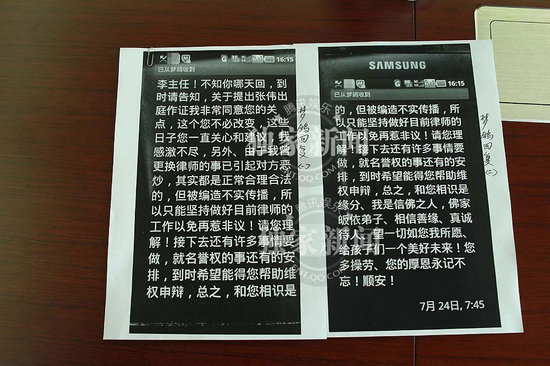 16:15
已从梦鸽收到
李主任！不知你哪天回，到
时请告知，关于提出张伟出
庭作证我非常同意您的关
点，这个您不必改变，这些
日子您一直关心和支持，我
感激不尽，另外、由于我
更换律师的事已引起对方恶
炒，其实都是正常合理合法
的，但被编造不实传播，所
以只能坚持做好目前律师的
工作以免再惹非议！请您理
解！接下去还有许多事情要
做，就名誉权的事还有的安
排，到时希望能得您帮助维
权申辩，总之，和您相识是
梦鸽回复(一)
SAMSUNG
16:15
已从梦鸽收到
的，但被编造不实传播，所
以只能坚持做好目前律师的
工作以免再惹非议！请您理
解！接下去还有许多事情要
做，就名誉权的事还有的安
排，到时希望能得您帮助维
权申辩，总之，和您相识是
缘分、我是信佛之人，佛家
皈依弟子、相信善缘、真诚
待人，望一切如您我所愿、
给孩子们一个美好未来！您
多操劳、您的厚恩永记不
忘！顺安！
7月 24日, 7:45
梦鸽回复(二)
腾讯娱乐
独家新闻
ENT.QQ.COM
腾讯娱乐
独家新闻
ENT.QQ.COM